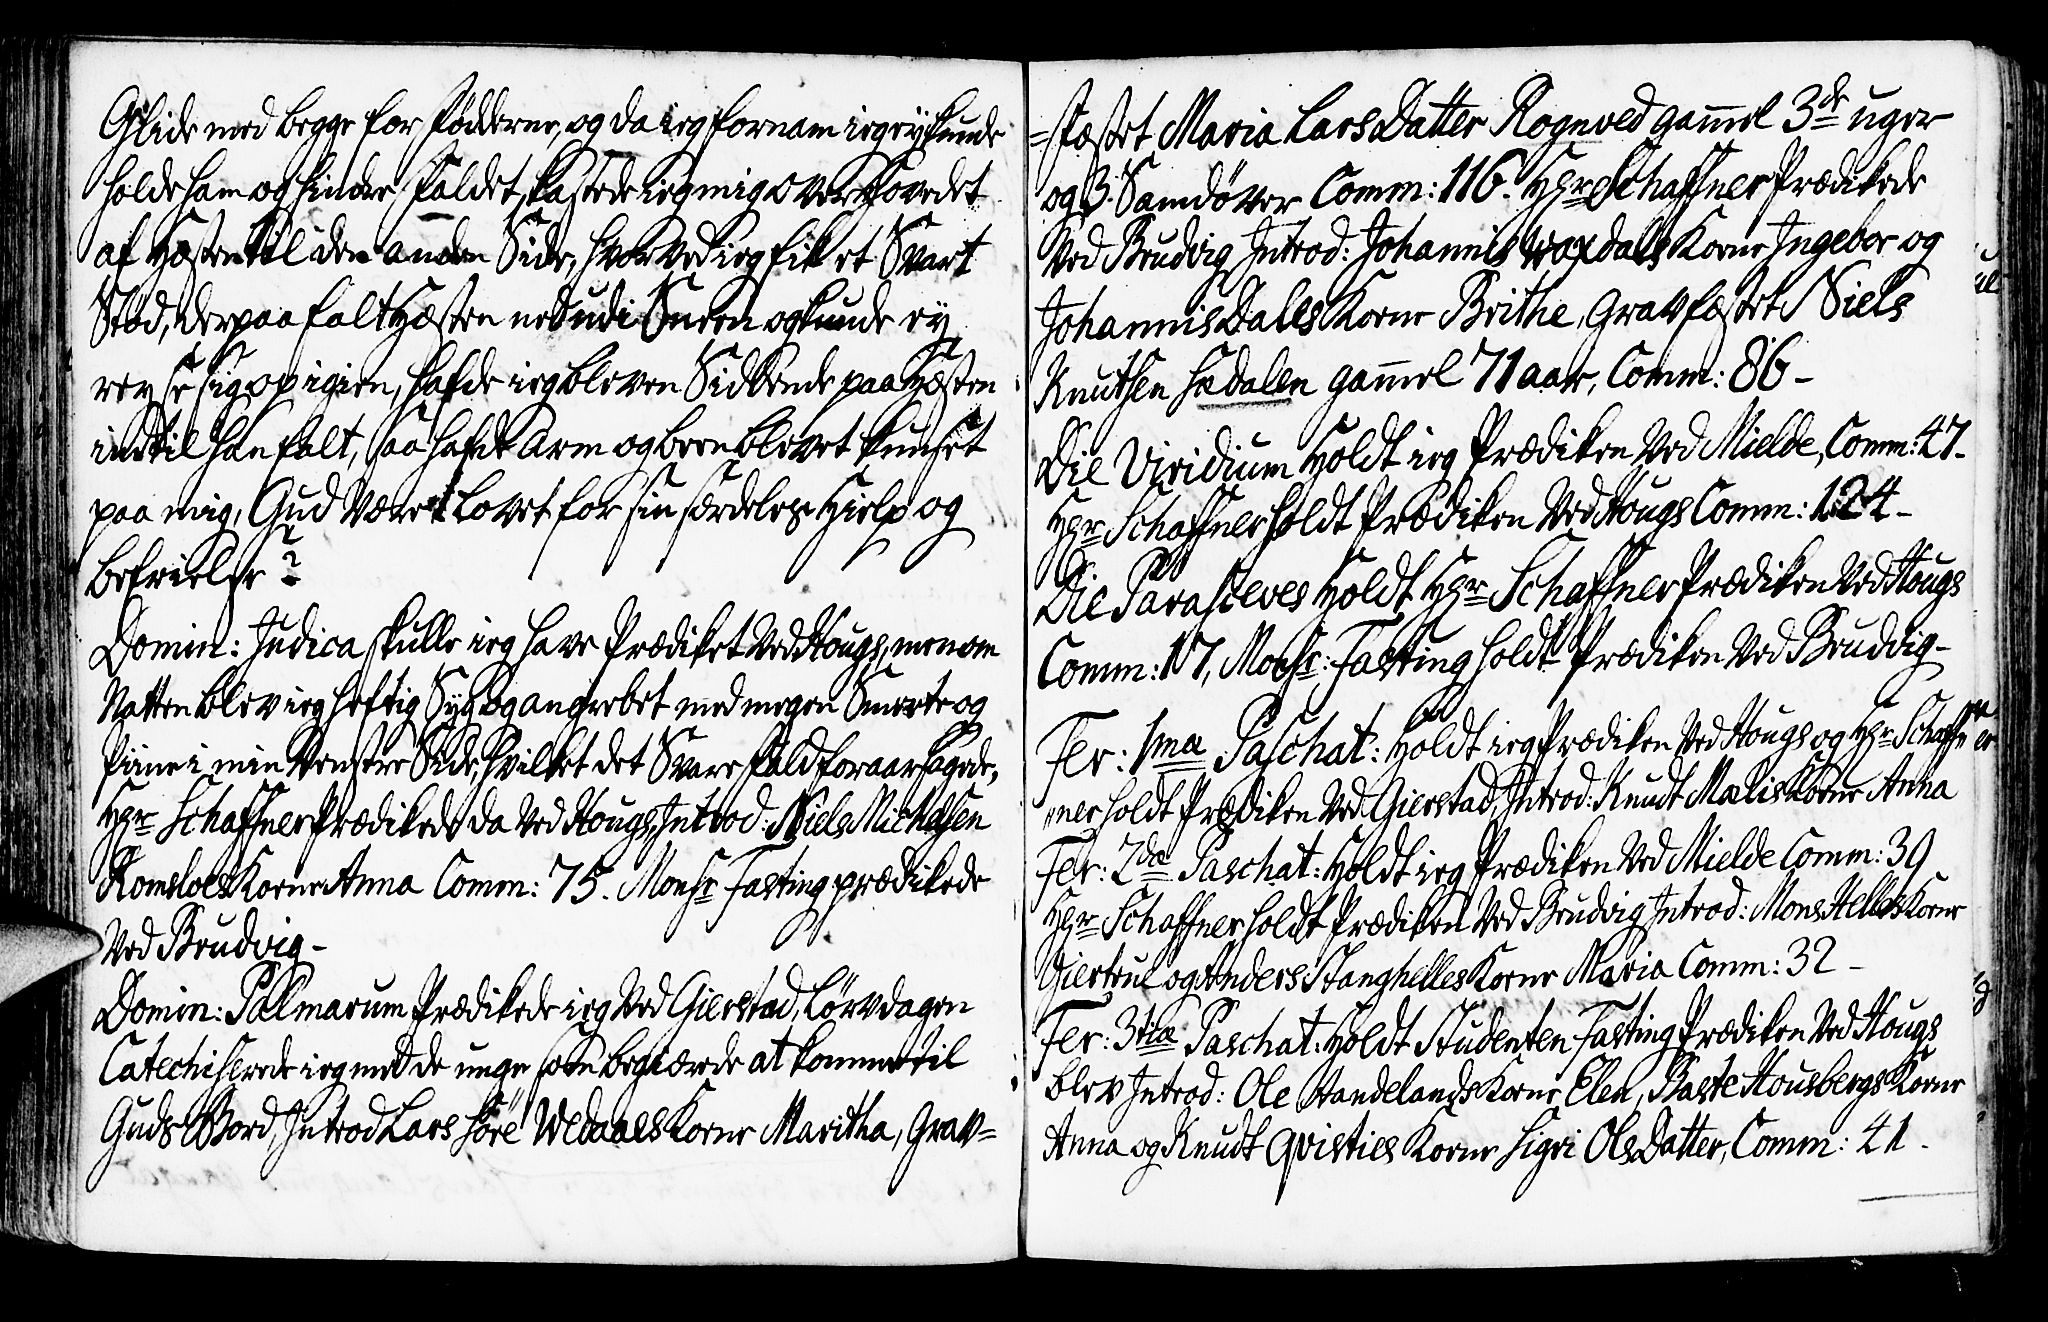 Glide med begge for fødderne, og da ieg fornam ieg ey kunde
holde ham og hindre faldet, kastede ieg mig over Hovedet
af Hæsten til den anden Side, hvorved ieg fik et Svart
Stød, derpaa falt Hæsten ned udi Sneen og kunde ey
reyse sig op igien, hafde ieg bleven Siddende paa Hæsten
indtil han falt, saa hafde Arm og been blevet knuset
paa mig, Gud Være Lovet for sin særdeles Hielp og
befrielse
Domin: Judica skulle ieg have Prædiket Ved Hougs, men om
Natten blev ieg heftig Syg og angrebet med megen Smerte og
Piine i min Venstre Side, hvilket det Svare fald foraarsagede,
Hr Schaffner Prædikede da Ved Hougs, Introd: Niels Michelsen
Romsloes Kone Anna Comm: 75. Monsr Fasting prædikede
Ved Brudvig –
Domin: Palmarum Prædikede ieg Ved Gierstad, Løverdagen
Catechiserede ieg med de unge som begiærede at komme til
Guds Bord, Introd Lars Søre Wedaaes Kone Maritha, Grav=
=fæstet Maria Lars Datter Rogneved gammel 3de uger
og 3. Samdøver Comm: 116. Hr Schaffner Prædikede
Ved Brudvig Introd: Johannis Waxdals Kone Ingebor og
Johannis Dalls Kone Brithe, Gravfæstet Niels
Knutsen Hædalen gammel 71 aar, Comm: 86 –
Die Viridium Holdt ieg Prædiken Ved Mielde, Comm: 47 –
Hr Schaffner holdt Prædiken Ved Hougs Comm: 124 –
Die Parasceves Holdt Hr Schaffner Prædiken Ved Hougs
Comm: 17, Monsr: Fasting holdt Prædiken Ved Brudvig –
Fer: 1ma Paschat: Holdt ieg Prædiken Ved Hougs og Hr Schaffner
ner holdt Prædiken Ved Gierstad, Introd: Knudt Mælis Kone Anna
Fer: 2da Paschat: Holdt ieg Prædiken Ved Mielde Comm: 39
Hr Schaffner holdt Prædiken Ved Brudvig Introd: Mons Helles Kone
Giertrue og Anders Stanghelles Kone Maria Comm: 32 –
Fer: 3tia Paschat: Holdt Studenten Fasting Prædiken Ved Hougs
blev Introd: Ole Handelands Kone Elen, Baste Housbergs Kone
Anna og Knudt Qvisties Kone Sigri Ols Datter, Comm: 41 –